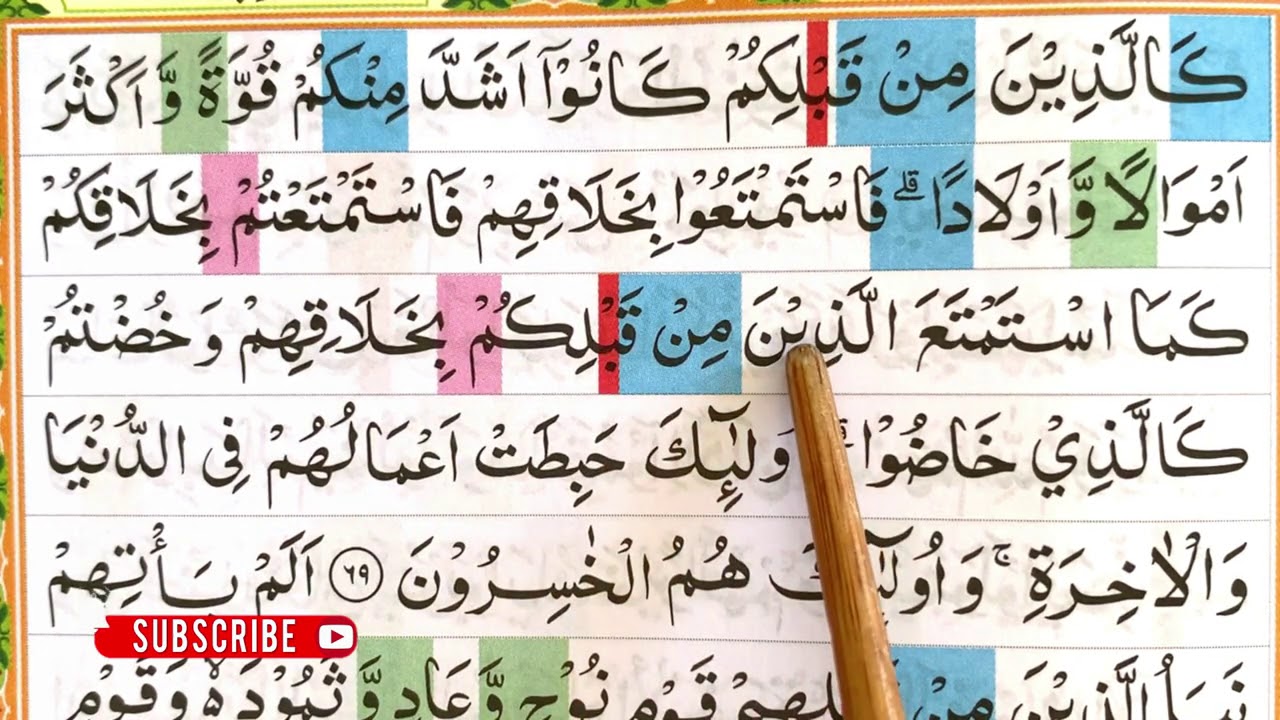 كَالَّذِيْنَ مِنْ قَبْلِكُمْ كَانُوْٓا اَشَدَّ مِنْكُمْ قُوَّةً وَّ اَكْثَرَ
اَمْوَالًا وَّ اَوْلَادًا ؕ فَاسْتَمْتَعُوْا بِخَلَاقِهِمْ فَاسْتَمْتَعْتُمْ بِخَلَاقِكُمْ
كَمَا اسْتَمْتَعَ الَّذِيْنَ مِنْ قَبْلِكُمْ بِخَلَاقِهِمْ وَ خُضْتُمْ
كَالَّذِيْ خَاضُوْا وَلٰٓئِكَ حَبِطَتْ اَعْمَالُهُمْ فِى الدُّنْيَا
وَالْاٰخِرَةِ ۚ وَ اُولٰٓئِكَ هُمُ الْخٰسِرُوْنَ ۝٦٩ اَلَمْ يَاْتِهِمْ
نَبَاُ الَّذِيْنَ مِنْ قَوْمِ نُوْحٍ وَّ عَادٍ وَّ ثَمُوْدَ ۙ وَ قَوْمِ
SUBSCRIBE